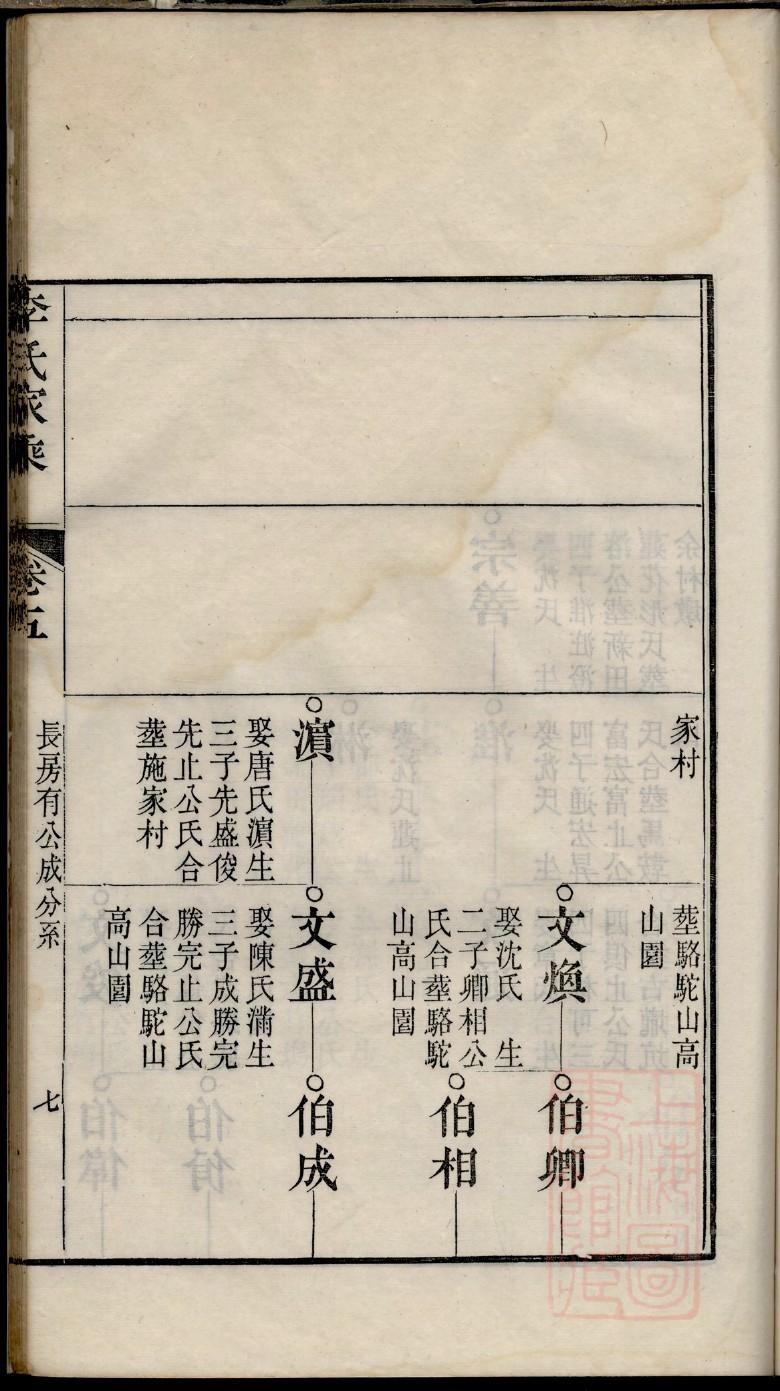 家村
塟駱駝山高
山園
文煥
娶沈氏　生
二子卿相公
氏合塟駱駝
山高山園
伯卿
伯相
濵
娶唐氏濵生
三子先盛俊
先止公氏合
塟施家村
文盛
娶陳氏满生
三子成勝完
勝完止公氏
合塟駱駝山
高山園
伯成
李氏家乘
卷五
長房有公成分系
七
上海圖書館藏